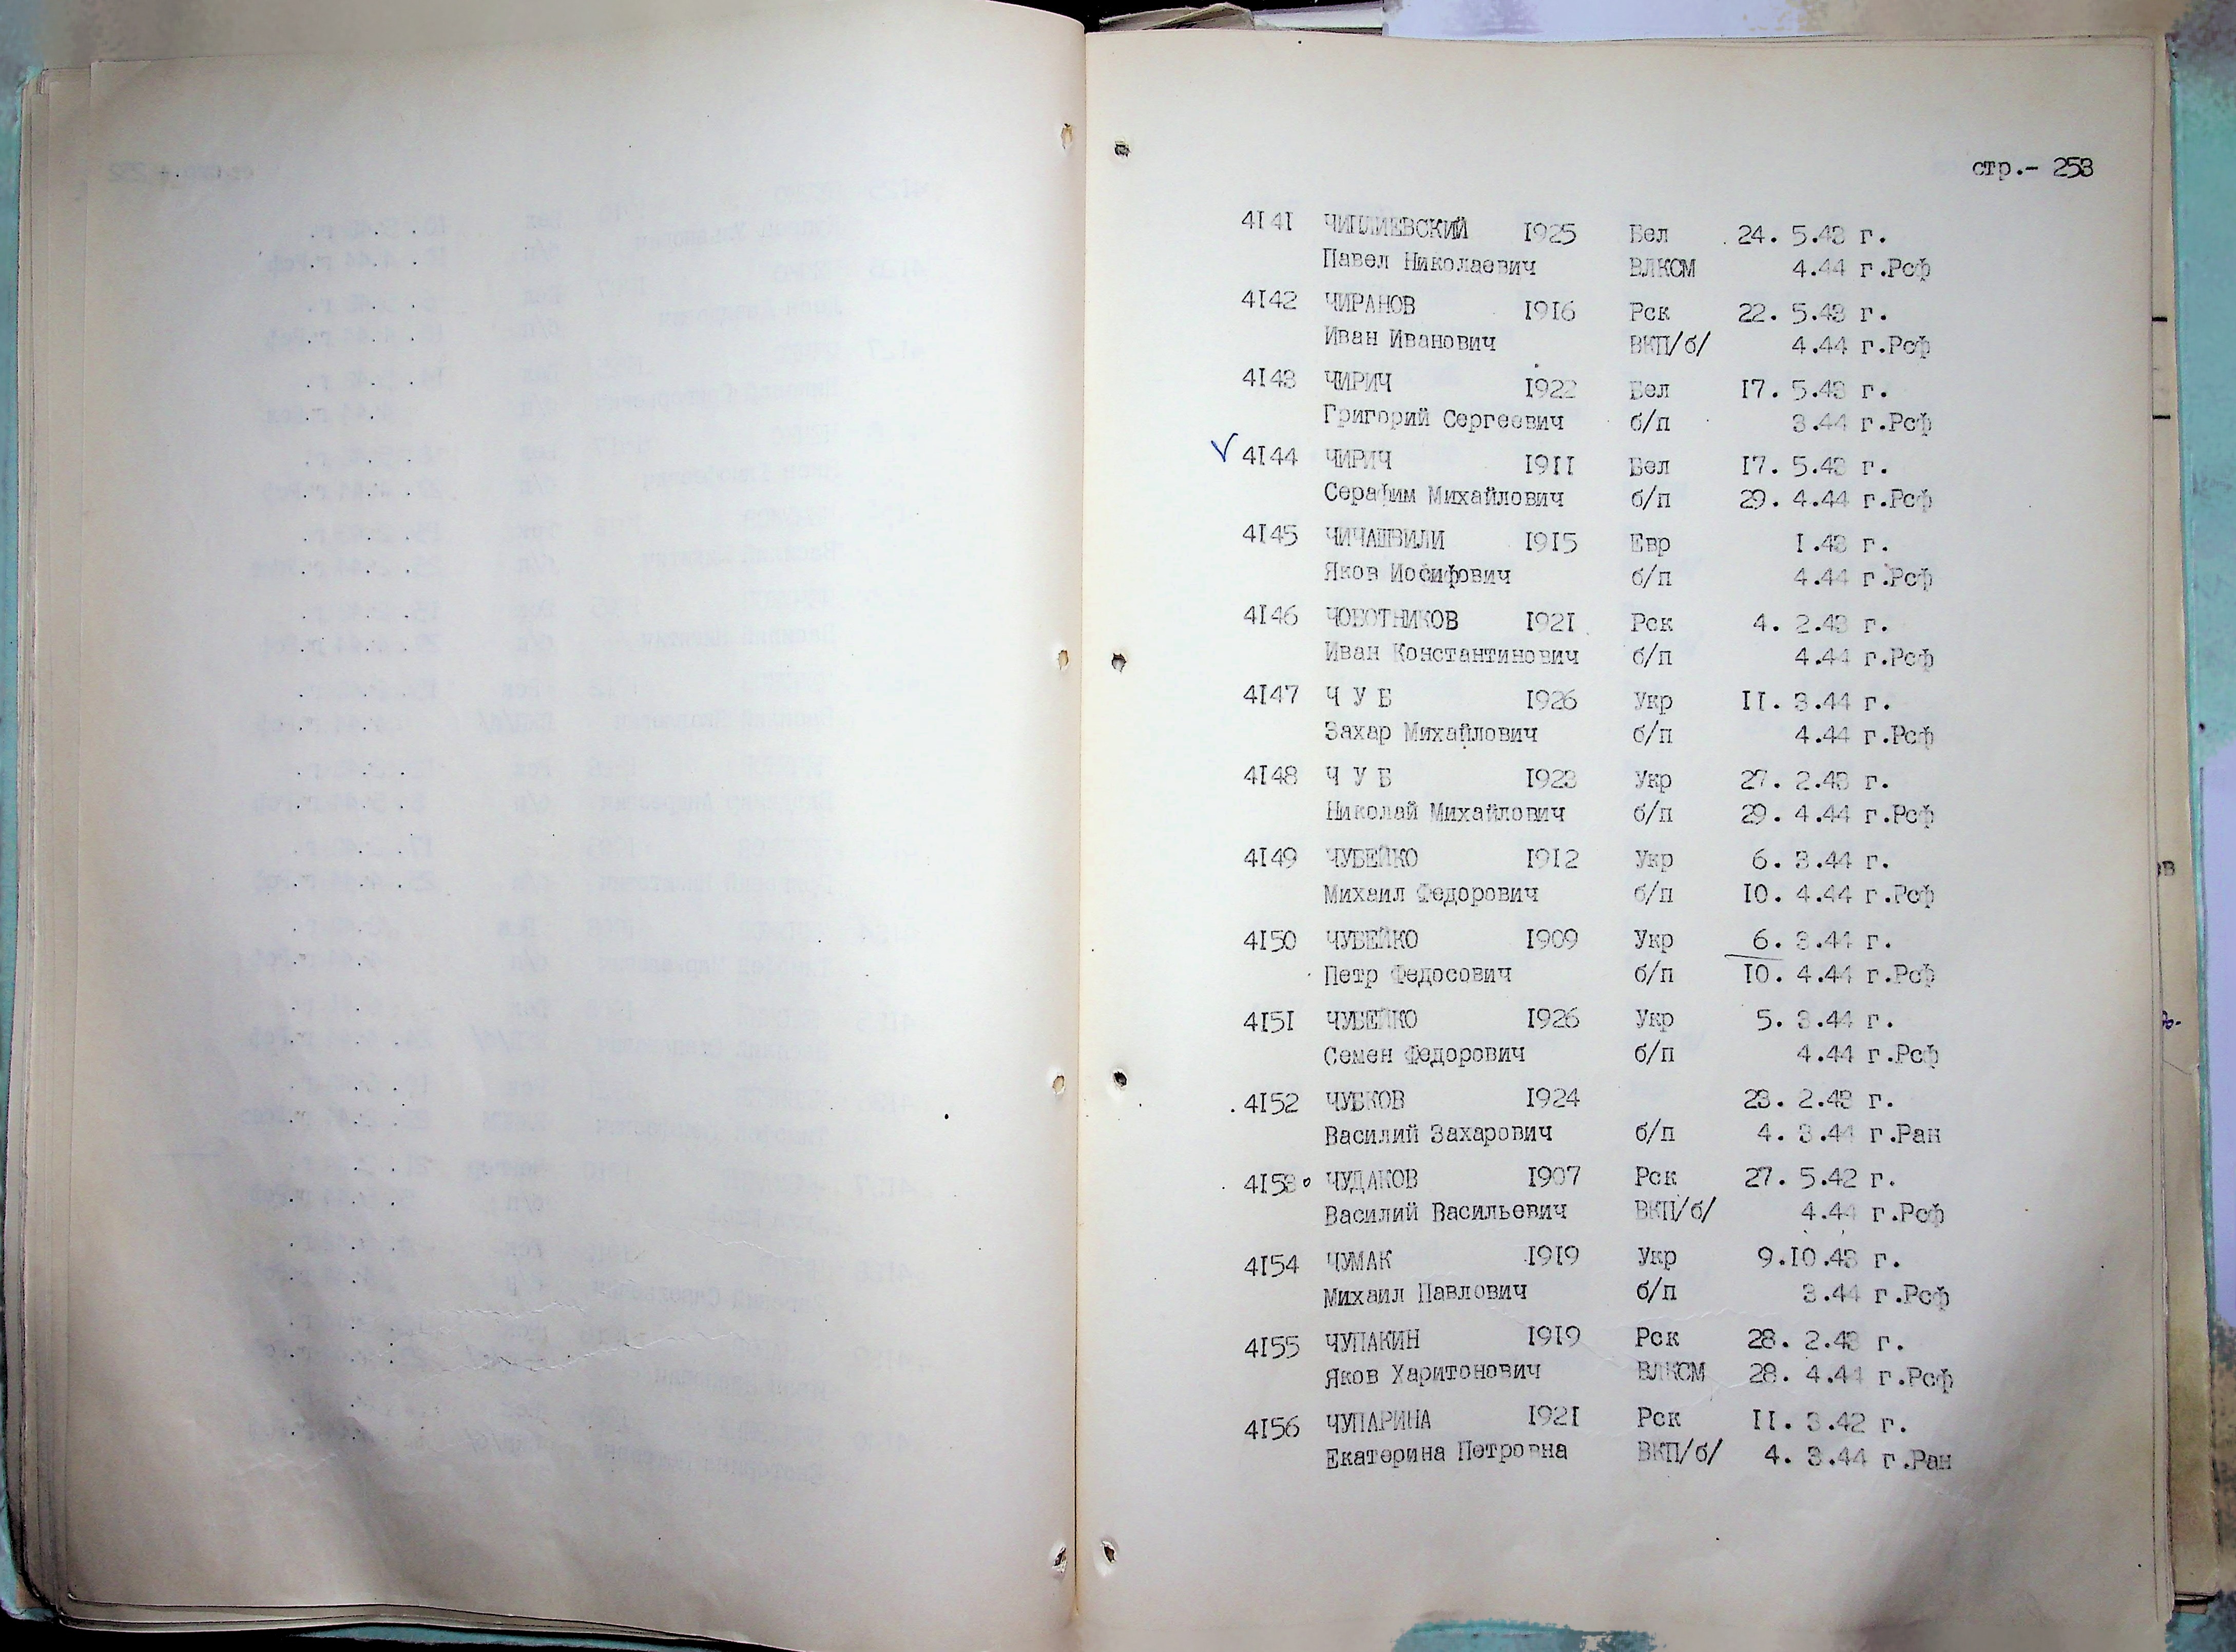 стр.- 253
4141 ЧИПЛИЕВСКИЙ 1925 Бел 24. 5.43 г.
Павел Николаевич ВЛКСМ 4.44 г.Рсф
4142 ЧИРАНОВ 1916 Рск 22. 5.43 г.
Иван Иванович ВКП/б/ 4.44 г.Рсф
4143 ЧИРИЧ 1922 Бел 17. 5.43 г.
Григорий Сергеевич б/п 3.44 г.Рсф
4144 ЧИРИЧ 1911 Бел 17. 5.43 г.
Серафим Михайлович б/п 29. 4.44 г.Рсф
4145 ЧИЧАШВИЛИ 1915 Евр 1.43 г.
Яков Иосифович б/п 4.44 г.Рсф
4146 ЧОБОТНИКОВ 1921 Рск 4. 2.43 г.
Иван Константинович б/п 4.44 г.Рсф
4147 Ч У Б 1926 Укр 11. 3.44 г.
Захар Михайлович б/п 4.44 г.Рсф
4148 Ч У Б 1923 Укр 27. 2.43 г.
Николай Михайлович б/п 29. 4.44 г.Рсф
4149 ЧУБЕЙКО 1912 Укр 6. 3.44 г.
Михаил Федорович б/п 10. 4.44 г.Рсф
4150 ЧУБЕЙКО 1909 Укр 6. 3.44 г.
Петр Федосович б/п 10. 4.44 г.Рсф
4151 ЧУБЕЙКО 1926 Укр 5. 3.44 г.
Семен Федорович б/п 4.44 г.Рсф
4152 ЧУБКОВ 1924 23. 2.43 г.
Василий Захарович б/п 4. 3.44 г.Ран
4153 ЧУДАКОВ 1907 Рск 27. 5.42 г.
Василий Васильевич ВКП/б/ 4.44 г.Рсф
4154 ЧУМАК 1919 Укр 9.10.43 г.
Михаил Павлович б/п 3.44 г.Рсф
4155 ЧУПАКИН 1919 Рск 28. 2.43 г.
Яков Харитонович ВЛКСМ 28. 4.44 г.Рсф
4156 ЧУПАРИНА 1921 Рск 11. 3.42 г.
Екатерина Петровна ВКП/б/ 4. 3.44 г.Ран